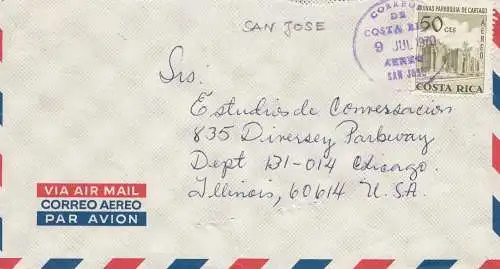 SAN JOSE
CORREOS
DE
COSTA RICA
9 JUL 1970
AEREO
SAN JOSE
RUINAS PARROQUIA DE CARTAGO
50 CTS
AEREO
COSTA RICA
Srs.
Estudios de Conversacion
835 Diversey Parkway
Dept 131-014 Chicago.
Illinois, 60614 U.S.A.
VIA AIR MAIL
CORREO AEREO
PAR AVION